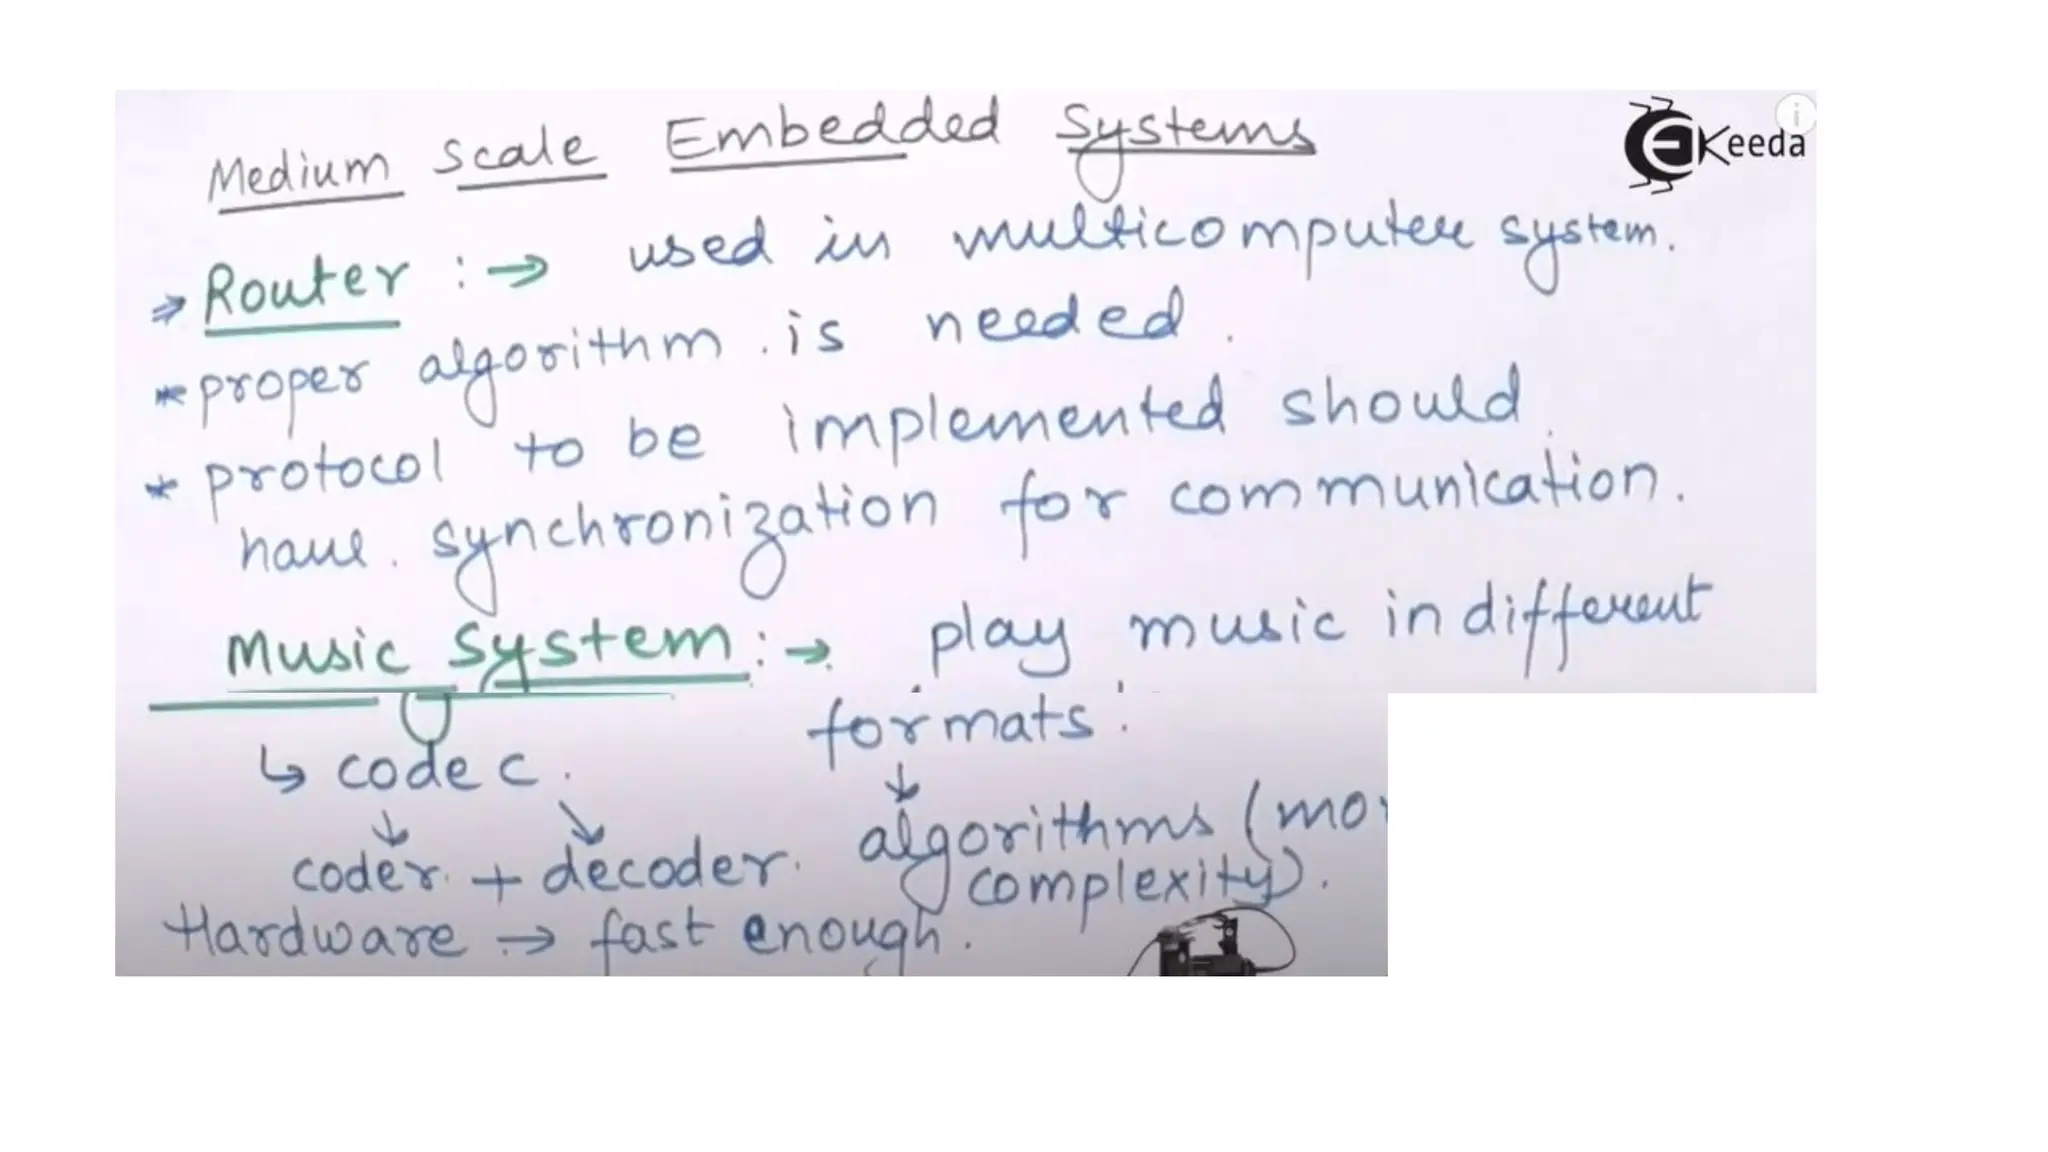 Medium Scale Embedded Systems
EKeeda
⇒ Router :→ used in multicomputer system.
* proper algorithm is needed.
* protocol to be implemented should
have synchronization for communication.
Music System :→ play music in different
formats.
↳ codec.
coder + decoder. algorithms (mor
complexity).
Hardware → fast enough.